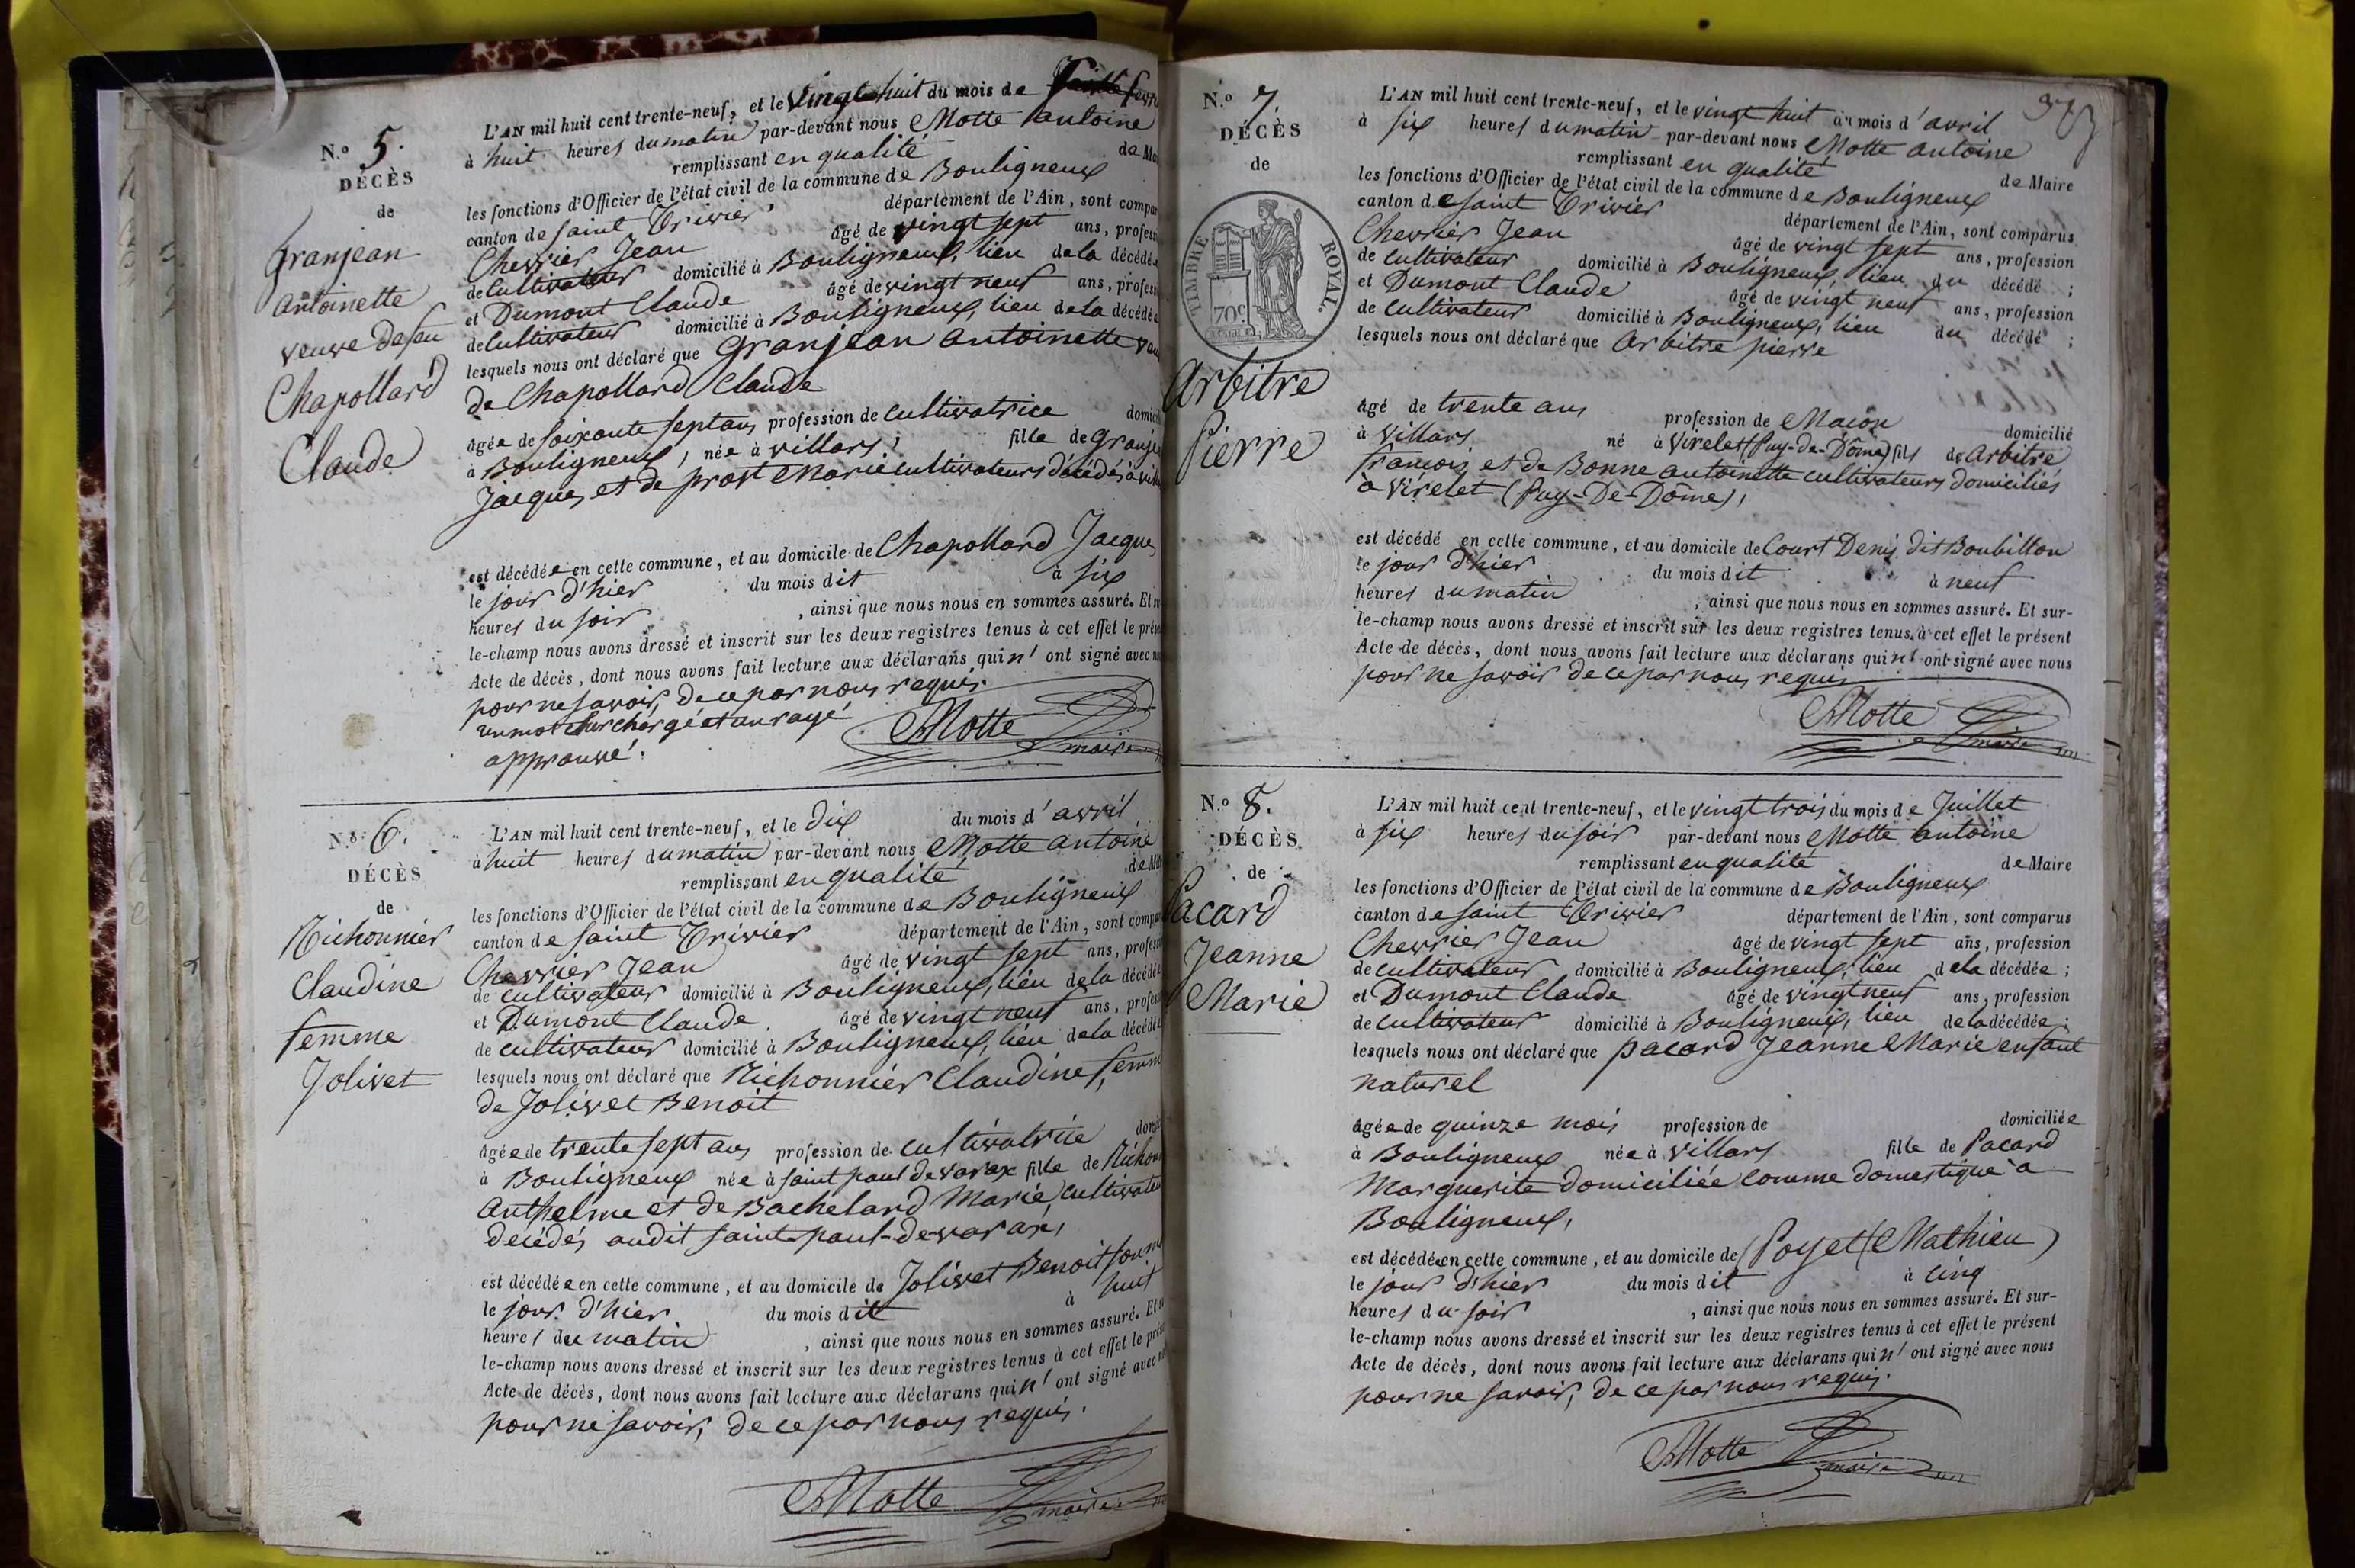 N.o 5.
DÉCÈS
de
Granjean
Antoinette
veuve de feu
Chapollard
Claude
L'AN mil huit cent trente-neuf, et le vingt huit du mois de
à huit heures du matin par-devant nous Motte antoine
remplissant en qualité de
les fonctions d'Officier de l'état civil de la commune de Bouligneux
canton de saint Trivier département de l'Ain, sont
Chevrier Jean âgé de vingt sept ans,
de cultivateur domicilié à Bouligneux, lieu de la décédée
et Dumont Claude âgé de vingt neuf ans,
de cultivateur domicilié à Bouligneux, lieu de la décédée
lesquels nous ont déclaré que Granjean antoinette
de Chapollard Claude
âgée de soixante sept ans profession de cultivatrice
à Bouligneux, née à villars, fille de
Jacques, et de prost Marie cultivateurs décédés à
est décédée en cette commune, et au domicile de Chapollard Jacques
le jour d'hier du mois dit à six
heures du soir, ainsi que nous nous en sommes assuré. Et
le-champ nous avons dressé et inscrit sur les deux registres tenus à cet effet le
Acte de décès, dont nous avons fait lecture aux déclarans qui n' ont signé avec
pour ne savoir, de ce par nous requis.
un mot surchargé et un rayé
approuvé.
Motte
maire
N.o 6.
DÉCÈS
de
Nichonnier
Claudine
femme
Jolivet
L'AN mil huit cent trente-neuf, et le dix du mois d'avril
à huit heures du matin par-devant nous Motte antoine
remplissant en qualité de
les fonctions d'Officier de l'état civil de la commune de Bouligneux
canton de saint Trivier département de l'Ain, sont
Chevrier Jean âgé de vingt sept ans,
de cultivateur domicilié à Bouligneux, lieu de la décédée
et Dumont Claude âgé de vingt neuf ans,
de cultivateur domicilié à Bouligneux, lieu de la décédée
lesquels nous ont déclaré que Nichonnier Claudine,
de Jolivet Benoit
âgée de trente sept ans profession de cultivatrice
à Bouligneux née à saint paul de varax fille de
Anthelme et de Bachelard Marie,
décédés audit saint-paul-de-varax,
est décédée en cette commune, et au domicile de Jolivet Benoit
le jour d'hier du mois dit à huit
heures du matin, ainsi que nous nous en sommes assuré. Et
le-champ nous avons dressé et inscrit sur les deux registres tenus à cet effet le
Acte de décès, dont nous avons fait lecture aux déclarans qui n' ont signé avec
pour ne savoir, de ce par nous requis.
Motte
maire
N.o 7.
DÉCÈS
de
TIMBRE ROYAL.
70c
Arbitre
Pierre
L'AN mil huit cent trente-neuf, et le vingt huit du mois d'avril
à six heures du matin par-devant nous Motte antoine
remplissant en qualité de Maire
les fonctions d'Officier de l'état civil de la commune de Bouligneux
canton de saint Trivier département de l'Ain, sont comparus
Chevrier Jean âgé de vingt sept ans, profession
de cultivateur domicilié à Bouligneux, lieu du décédé ;
et Dumont Claude âgé de vingt neuf ans, profession
de cultivateur domicilié à Bouligneux, lieu du décédé ;
lesquels nous ont déclaré que Arbitre pierre
âgé de trente ans profession de Maçon domicilié
à Villars né à Virelet (Puy-de-Dôme) fils de Arbitre
françois, et de Bonne antoinette cultivateurs domiciliés
à Virelet (Puy-De-Dôme),
est décédé en cette commune, et au domicile de Court Denis, dit Boubillon
le jour d'hier du mois dit à neuf
heures du matin, ainsi que nous nous en sommes assuré. Et sur-
le-champ nous avons dressé et inscrit sur les deux registres tenus à cet effet le présent
Acte de décès, dont nous avons fait lecture aux déclarans qui n' ont signé avec nous
pour ne savoir de ce par nous requis
Motte
maire
N.o 8.
DÉCÈS
de
Pacard
Jeanne
Marie
L'AN mil huit cent trente-neuf, et le vingt trois du mois de Juillet
à six heures du soir par-devant nous Motte antoine
remplissant en qualité de Maire
les fonctions d'Officier de l'état civil de la commune de Bouligneux
canton de saint Trivier département de l'Ain, sont comparus
Chevrier Jean âgé de vingt sept ans, profession
de cultivateur domicilié à Bouligneux, lieu de la décédée ;
et Dumont Claude âgé de vingt neuf ans, profession
de cultivateur domicilié à Bouligneux, lieu de la décédée ;
lesquels nous ont déclaré que pacard Jeanne Marie enfant
naturel
âgée de quinze mois profession de domiciliée
à Bouligneux née à Villars fille de Pacard
Marguerite domiciliée comme domestique à
Bouligneux,
est décédée en cette commune, et au domicile de (Poyet (Mathieu)
le jour d'hier du mois dit à cinq
heures du soir, ainsi que nous nous en sommes assuré. Et sur-
le-champ nous avons dressé et inscrit sur les deux registres tenus à cet effet le présent
Acte de décès, dont nous avons fait lecture aux déclarans qui n' ont signé avec nous
pour ne savoir, de ce par nous requis.
Motte
maire